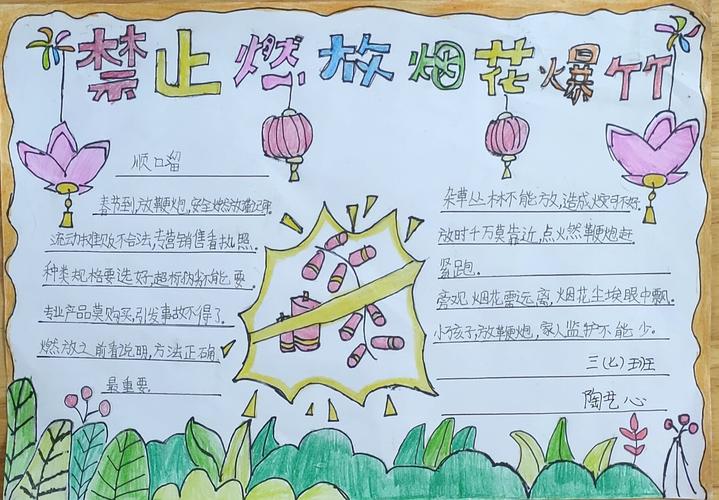 禁止燃放烟花爆竹
顺口溜
春节到,放鞭炮,安全燃放
流动摊贩不合法,专营销售看执照。
种类规格要选好,超标伪劣不能要
专业产品莫购买,引发事故不得了。
燃放之前看说明,方法正确
最重要
杂草丛林不能放,造成火灾可不好。
放时千万莫靠近,点火燃鞭炮赶
紧跑。
旁观烟花需远离,烟花尘埃眼中飘。
小孩子放鞭炮,家人监护不能少。
三(七)班
陶艺心